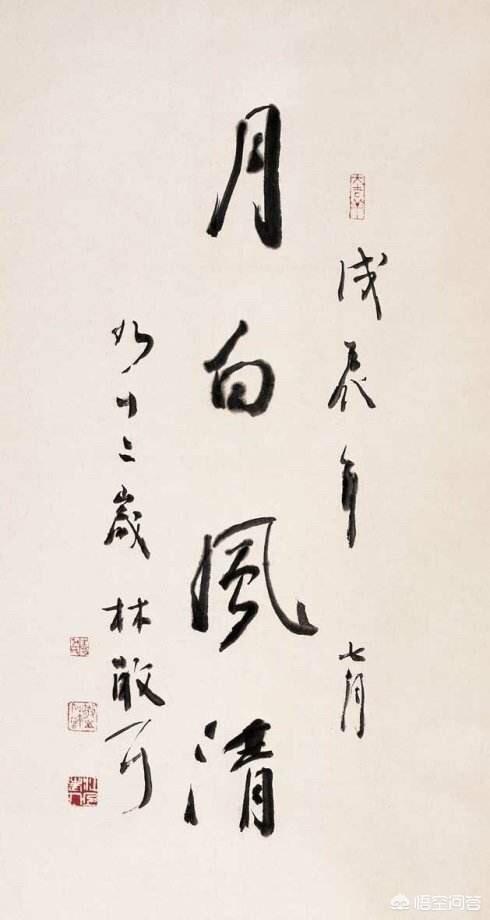 戊辰年 七月
月白風清
九十二歲 林散耳
悟空问答